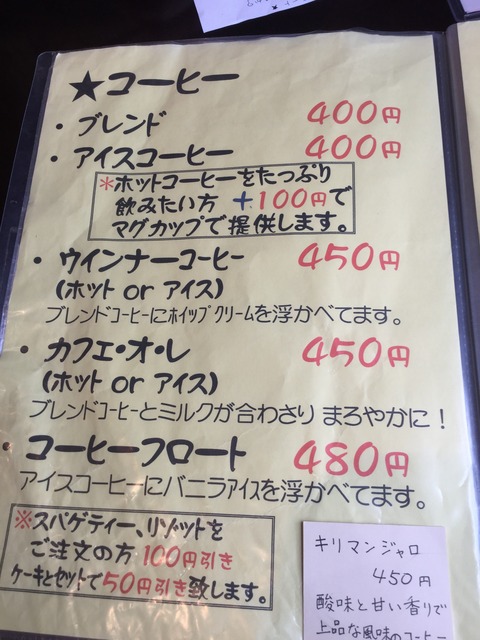 ★コーヒー
・ブレンド 400円
・アイスコーヒー 400円
*ホットコーヒーをたっぷり
飲みたい方 +100円で
マグカップで提供します。
・ウインナーコーヒー 450円
(ホット or アイス)
ブレンドコーヒーにホイップクリームを浮かべてます。
・カフェ・オ・レ 450円
(ホット or アイス)
ブレンドコーヒーとミルクが合わさり まろやかに!
・コーヒーフロート 480円
アイスコーヒーにバニラアイスを浮かべてます。
※スパゲティー、リゾットを
ご注文の方 100円引き
ケーキとセットで50円引き致します。
キリマンジャロ
450円
酸味と甘い香りで
上品な風味のコーヒー